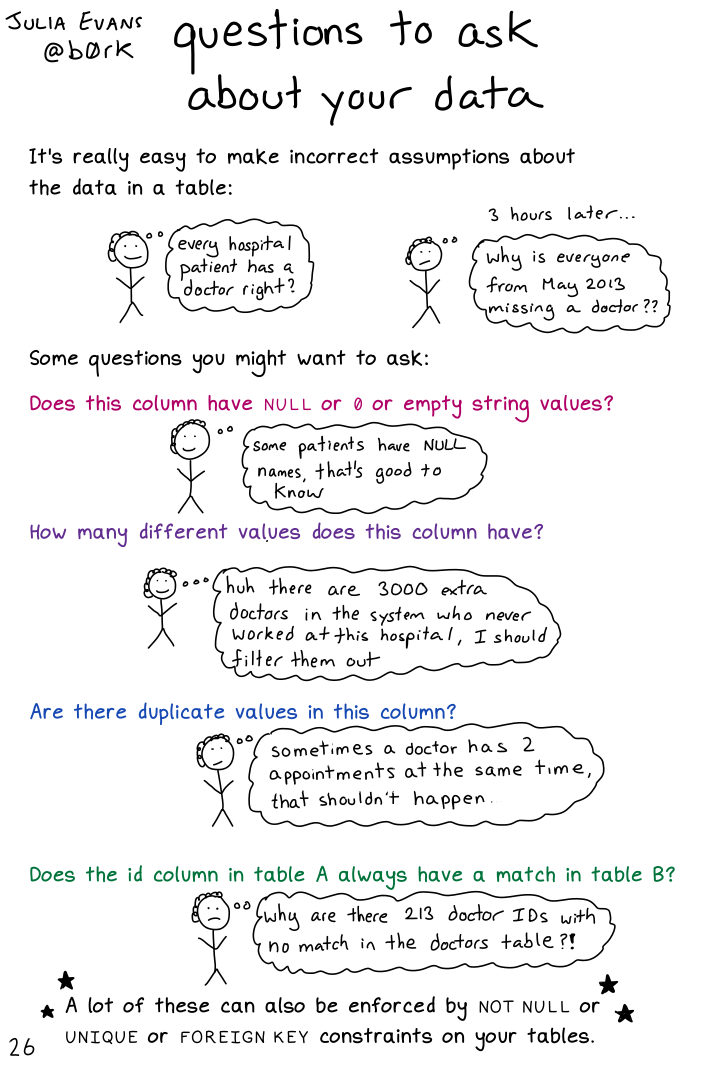 JULIA EVANS
@b0rk
questions to ask
about your data
It's really easy to make incorrect assumptions about
the data in a table:
every hospital
patient has a
doctor right?
3 hours later...
why is everyone
from May 2013
missing a doctor??
Some questions you might want to ask:
Does this column have NULL or 0 or empty string values?
some patients have NULL
names, that's good to
know
How many different values does this column have?
huh there are 3000 extra
doctors in the system who never
worked at this hospital, I should
filter them out
Are there duplicate values in this column?
sometimes a doctor has 2
appointments at the same time,
that shouldn't happen.
Does the id column in table A always have a match in table B?
why are there 213 doctor IDs with
no match in the doctors table?!
A lot of these can also be enforced by NOT NULL or
UNIQUE or FOREIGN KEY constraints on your tables.
26